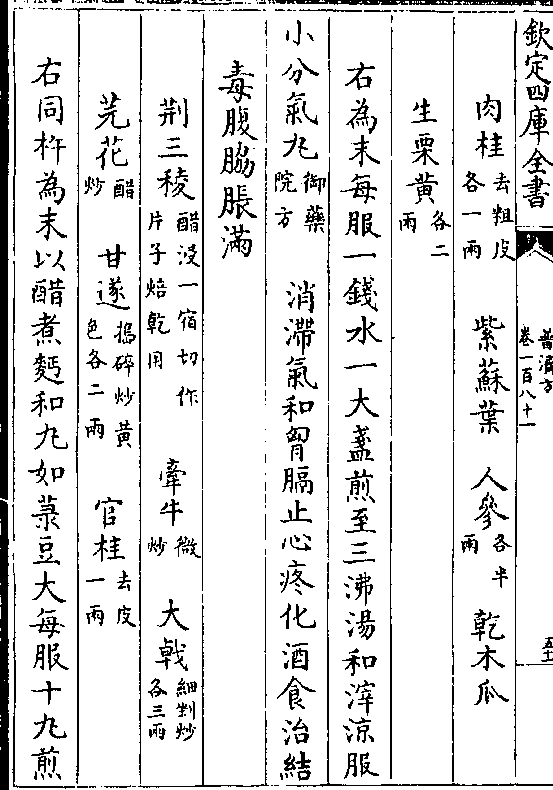 欽定四庫全書 普濟方 卷一百八十一
肉桂去粗皮各一兩 紫蘇葉 人參各半兩 乾木瓜
生栗黃各二兩
右為末每服一錢水一大盞煎至三沸湯和滓涼服
小分氣丸御藥院方 消滯氣和胃膈止心疼化酒食治結
毒腹脇脹滿
荆三稜醋浸一宿切作片子焙乾用 牽牛微炒 大戟細剉炒各三兩
芫花醋炒 甘遂搗碎炒黃色各二兩 官桂去皮一兩
右同杵為末以醋煮麪和丸如菉豆大每服十丸煎